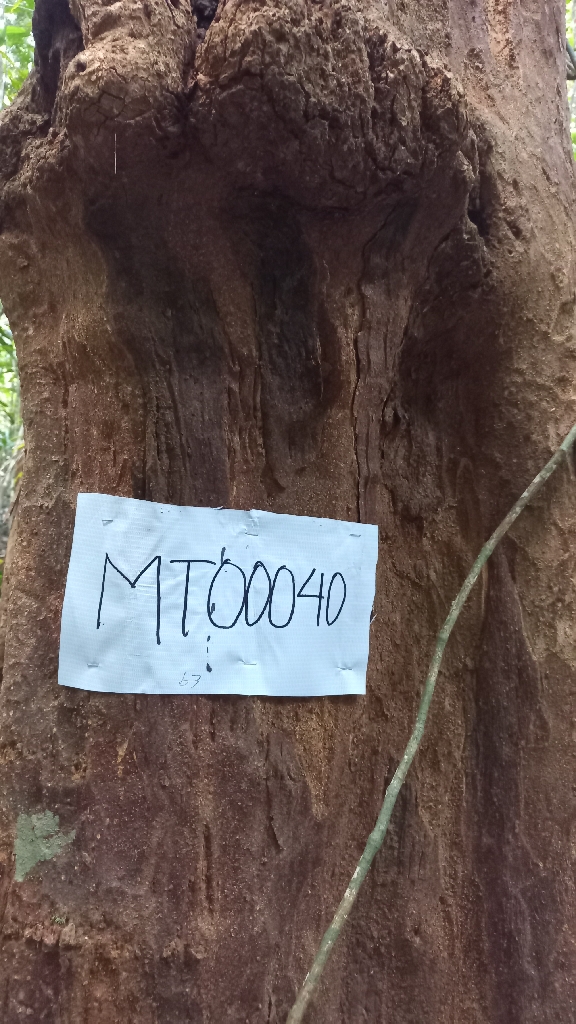 MT00040
63